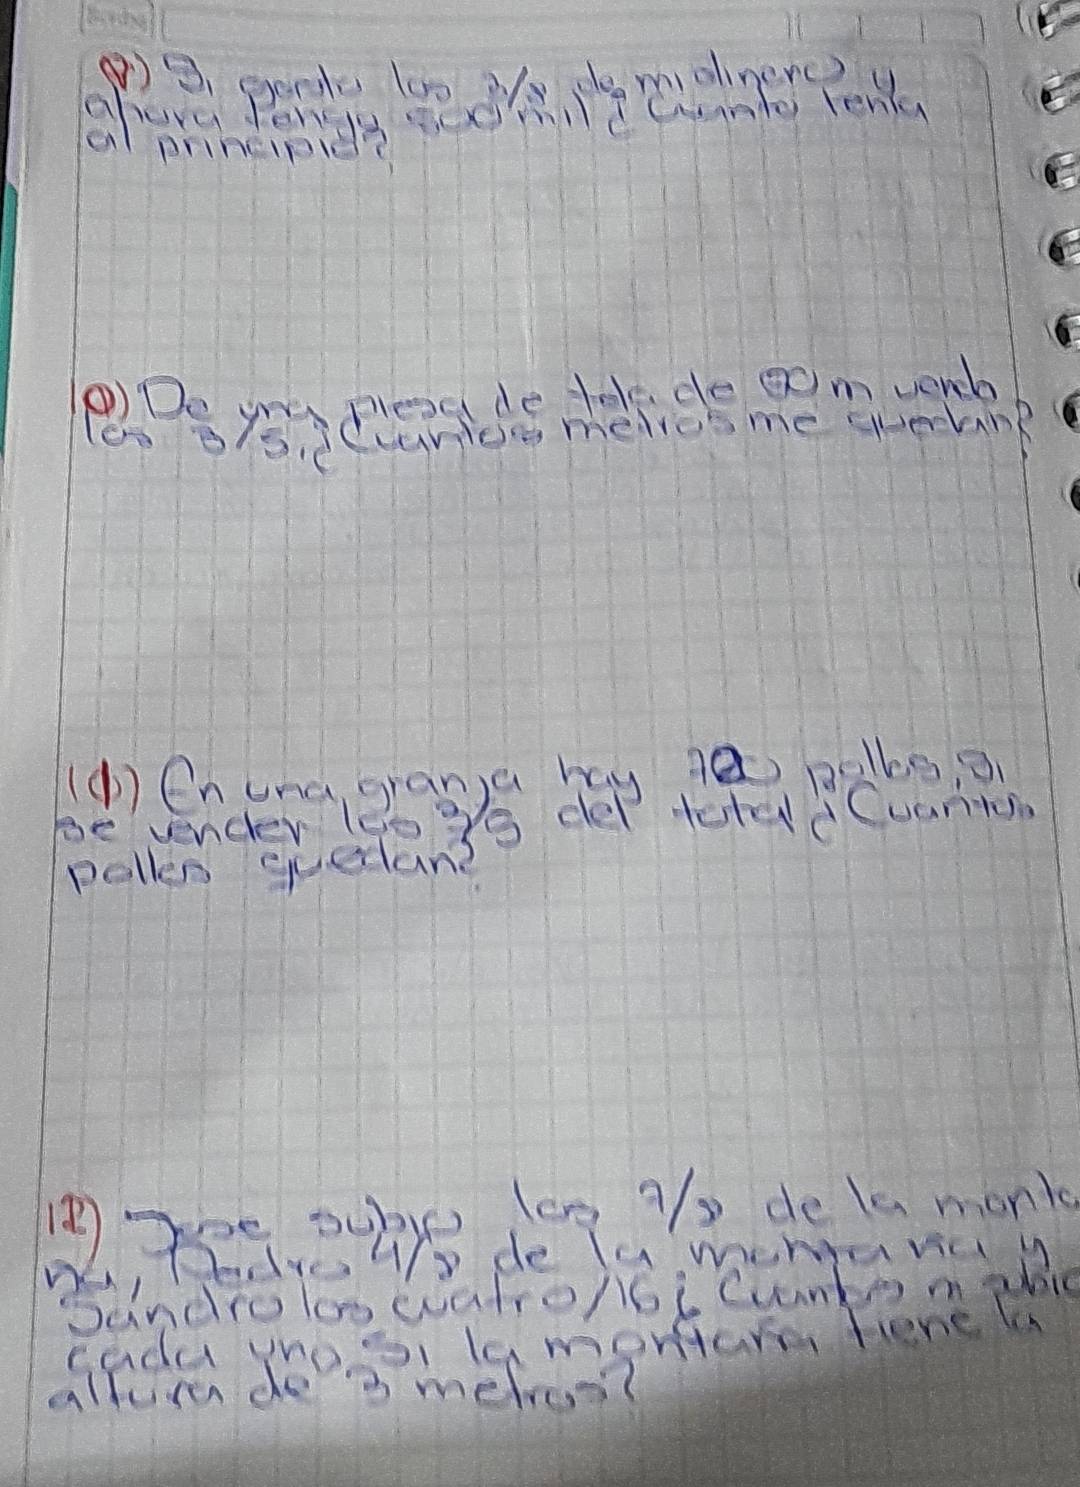 9) Si perdí los 3/8 de mi dinero y
ahora tengo mil ¿Cuanto tenia
al principio?
10) De una piesa de tela de m vendo
los 3/5, ¿Cuantos metros me quedan?
11) En una granja hay pollos, si
se venden los 3/5 del total ¿Cuantos
pollos quedan?
12) Jose subio los 7/8 de la monta
ña, Pedro 4/8 de la montaña y
Sandro los cuatro/16 ¿Cuantos m subio
cada uno si la montaña tiene la
altura de 3 metros?